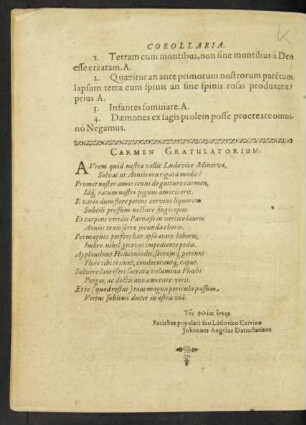 COROLLARIA.
1. Terram cum montibus, non sine montibus à Deo
esse creatam. A.
2. Quæritur an ante primorum nostrorum parẽtum
lapsum terra cum spinis an sine spinis rosas produxerit
prius A
3. Infantes somniare. A.
4. Dæmones ex sagis prolem posse procreare omni-
nò Negamus.
CARMEN GRATULATORIUM.
AUrem quid nostra vellis Ludovice Minerva,
Solvat ut Aoniis ora rigata modis?
Promet noster amor tenui de gutture carmen,
Idq́; ratum nostri pignus amoris erit.
E vario dum flore petens cervus liquorem
Subtili pressum nectare fingit opus.
Et carpens viridis Parnassi in vertice lauros
Aoniis texis serta jucunda choris.
Permagnos perfers hac ipsâ aetate labores,
Imbre nihil gnavos impediente pedes.
Applaudunt Heliconiades, sertumq́; perenne
Flore tibi texunt, condecorantq́; caput.
Solvere laurifera sacrata volumina Phoebi
Pergas, ac doctis annumerare viris.
Et te (quod restat) tam magna pericula passum,
Virtus sublimi ducet in astra viâ.
Τῆς φιλίας ἕνεκα
Faciebat populari suo Lüdovico Cervino
Johannes Angelus Darmstatinus